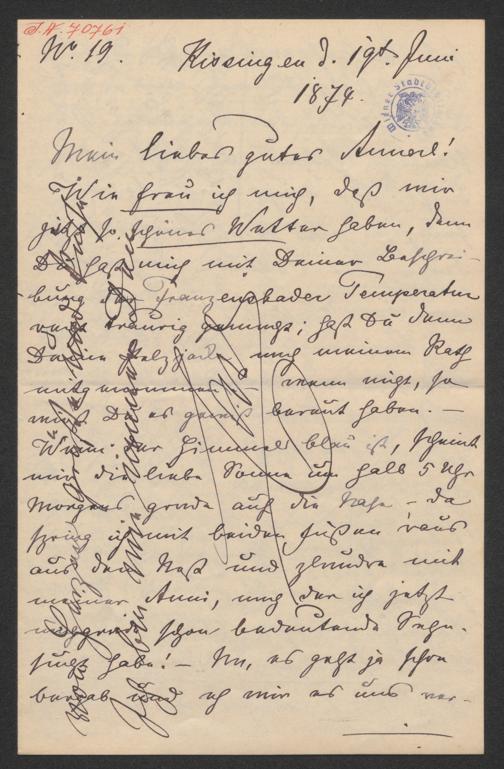 I.N. 70761
No. 19.
Kissingen d. 19t. Juni
1874.
Mein liebes gutes Annerl!
Wie freu ich mich, daß wir
jetzt so schönes Wetter haben, denn
Du hast mich mit Deiner Beschrei-
bung der Franzensbader Temperatur
ganz traurig gemacht; hast Du denn
Deine Pelzjacke nach meinem Rath
mitgenommen – wenn nicht, so
wirst Du es gewiß bereut haben. –
Wenn der Himmel blau ist, scheint
mir die liebe Sonne um halb 5 Uhr
Morgens grade auf die Nase – da
spring ich mit beiden Füßen 'raus
aus dem Nest und plaudre mit
meiner Anni, nach der ich jetzt
schon bedeutende Sehn-
sucht habe! – Na, es geht ja schon
bergab und eh wir es uns ver-